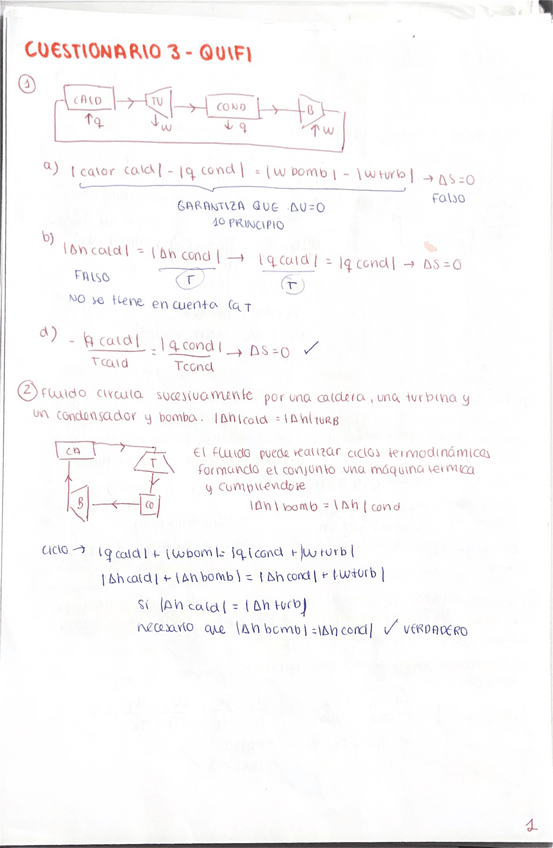 CUESTIONARIO 3 - QUIFI
①
CALD → TU → COND → B
↑q ↓w ↓q ↑w
a) |calor cald| - |q cond| = |w bomb| - |w turb| → ΔS=0
Falso
GARANTIZA QUE ΔU=0
1º PRINCIPIO
b) |Δh cald| = |Δh cond| → |q cald| = |q cond| → ΔS=0
FALSO T T
NO se tiene en cuenta la T
d) - |q cald| = |q cond| → ΔS=0 ✓
Tcald Tcond
② Fluido circula sucesivamente por una caldera, una turbina y
un condensador y bomba. |Δh|cald = |Δh|TURB
CA
T
B
CO
El fluido puede realizar ciclos termodinámicos
formando el conjunto una máquina térmica
y cumpliendose
|Δh|bomb = |Δh|cond
ciclo → |q cald| + |w bom| = |q|cond + |w turb|
|Δh cald| + |Δh bomb| = |Δh cond| + |w turb|
Si |Δh cald| = |Δh turb|
necesario que |Δh bomb| = |Δh cond| ✓ VERDADERO
1